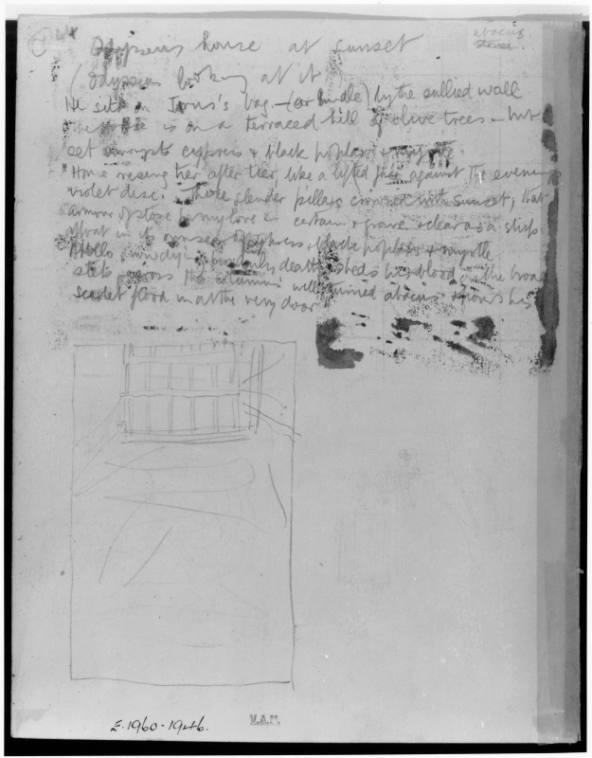 abacus
stone.
Odysseus house at sunset
(Odysseus looking at it)
He sits on Irus's bag - (or bundle) by the sullied wall
is on a terraced hill of olive trees - but
set amongst cypress & black poplars & myrtle.
"Home rising tier after tier like a lifted against the evening
violet disc. Those slender pillars crowned with sunset, that
armour of stone certain & grave & clear as a ship
afloat in its of cypress & black poplars & myrtle
Apollo, death, sheds his blood in the broad
steps across the columns well abacus & pours his
scarlet flood in at the very door
E.1960-1946.
V.A.M.